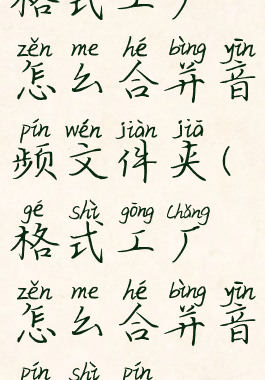 格式工厂
zěn me hé bìng yīn
怎么合并音
pín wén jiàn jiā
频文件夹(
gé shì gōng chǎng
格式工厂
zěn me hé bìng yīn
怎么合并音
pín shì pín